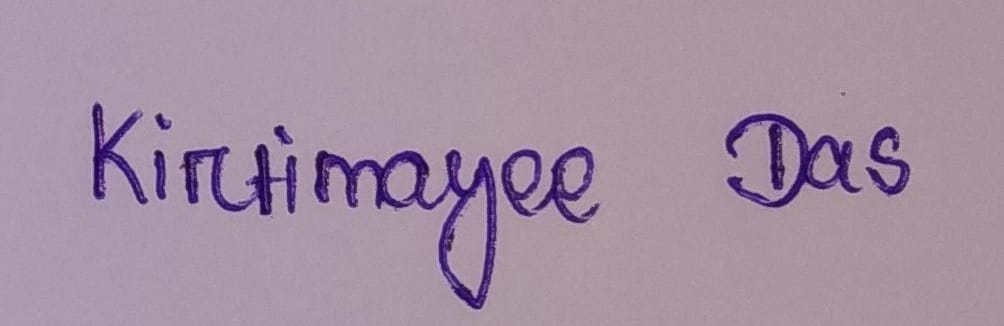 Kirtimayee Das